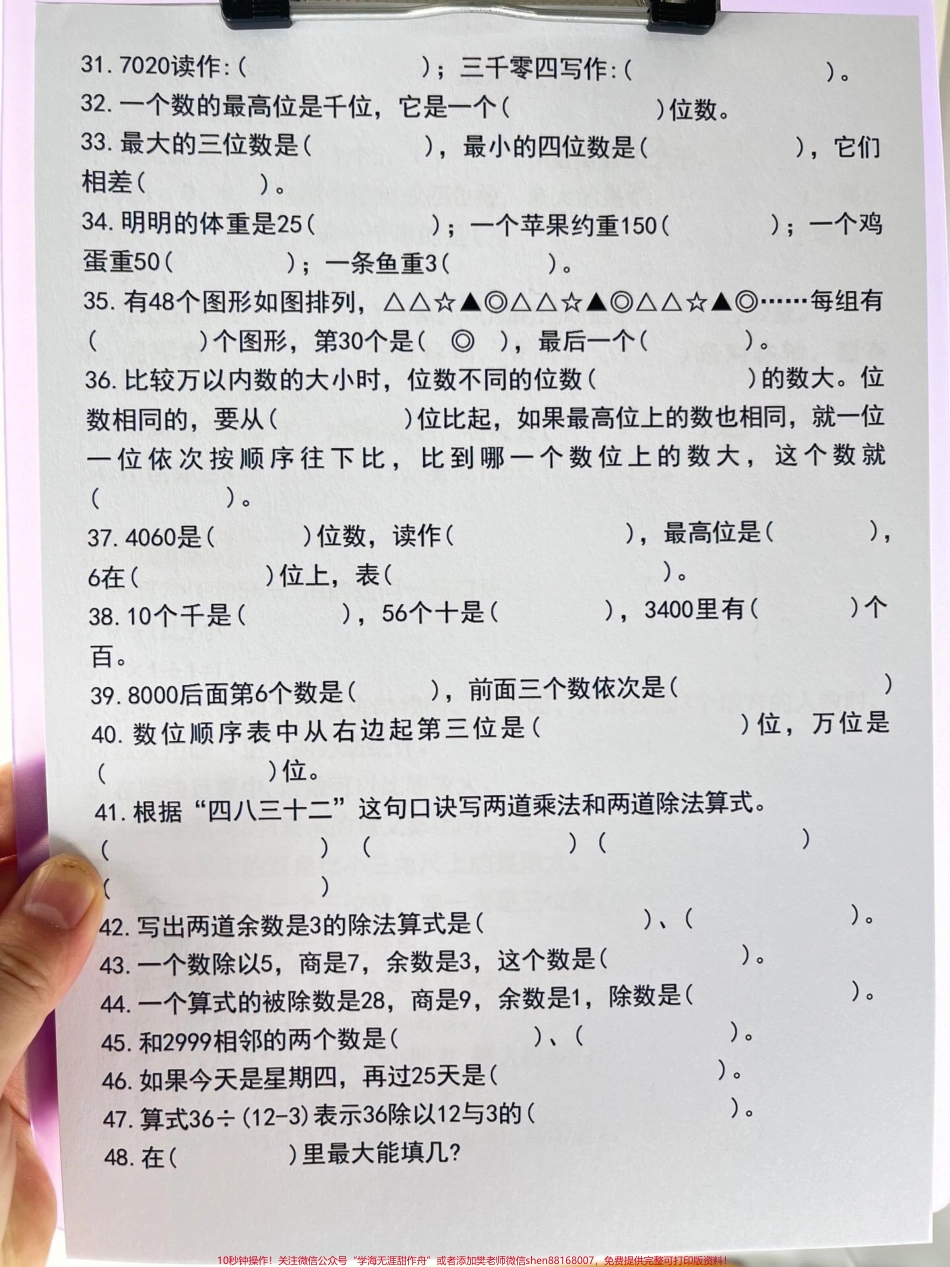 31.7020读作:(    )；三千零四写作:(    )。
32.一个数的最高位是千位，它是一个(    )位数。
33.最大的三位数是(    )，最小的四位数是(    )，它们
相差(    )。
34.明明的体重是25(    )；一个苹果约重150(    )；一个鸡
蛋重50(    )；一条鱼重3(    )。
35.有48个图形如图排列，△△☆▲◎△△☆▲◎△△☆▲◎……每组有
(    )个图形，第30个是( ◎ )，最后一个(    )。
36.比较万以内数的大小时，位数不同的位数(    )的数大。位
数相同的，要从(    )位比起，如果最高位上的数也相同，就一位
一位依次按顺序往下比，比到哪一个数位上的数大，这个数就
(    )。
37.4060是(    )位数，读作(    )，最高位是(    )，
6在(    )位上，表(    )。
38.10个千是(    )，56个十是(    )，3400里有(    )个
百。
39.8000后面第6个数是(    )，前面三个数依次是(    )
40.数位顺序表中从右边起第三位是(    )位，万位是
(    )位。
41.根据“四八三十二”这句口诀写两道乘法和两道除法算式。
(    ) (    ) (    )
(    )
42.写出两道余数是3的除法算式是(    )、(    )。
43.一个数除以5，商是7，余数是3，这个数是(    )。
44.一个算式的被除数是28，商是9，余数是1，除数是(    )。
45.和2999相邻的两个数是(    )、(    )。
46.如果今天是星期四，再过25天是(    )。
47.算式36÷(12-3)表示36除以12与3的(    )。
48.在(    )里最大能填几?
10秒钟操作！关注微信公众号“学海无涯甜作舟”或者添加樊老师微信shen88168007，免费提供完整可打印版资料！